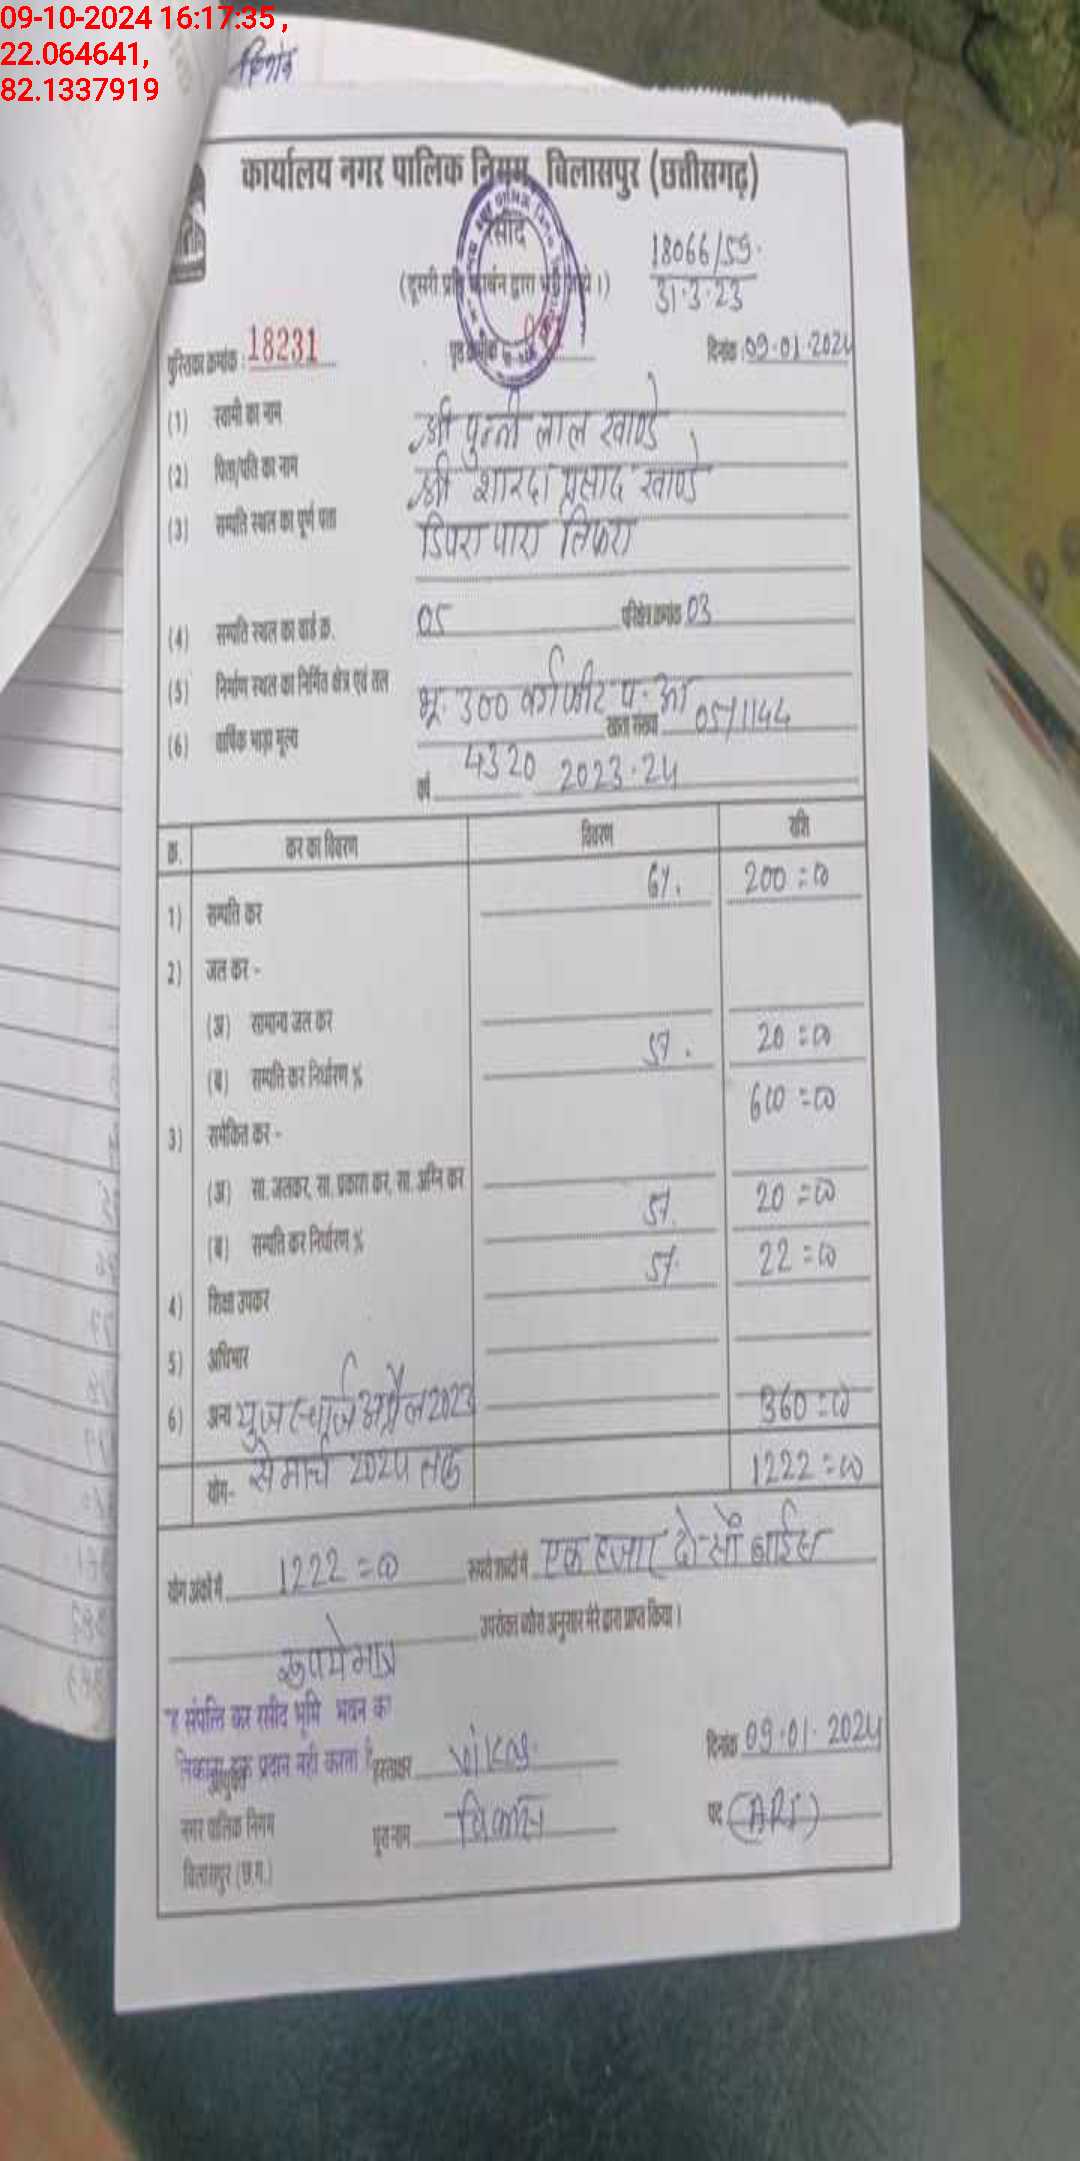 09-10-2024 16:17:35 ,
22.064641,
82.1337919
कार्यालय नगर पालिक निगम, बिलासपुर (छत्तीसगढ़)
रसीद
18066/59.
31.3.23
(दूसरी प्रति कार्बन द्वारा भरी जाये।)
पुस्तिका क्रमांक : 18231 पृष्ठ क्रमांक दिनांक : 09.01.2024
(1) स्वामी का नाम श्री पुन्नी लाल खाण्डे
(2) पिता/पति का नाम श्री शारदा प्रसाद खाण्डे
(3) सम्पति स्थल का पूर्ण पता डिपरा पारा तिफरा
(4) सम्पति स्थल का वार्ड क्र. 05 परिक्षेत्र क्रमांक 03
(5) निर्माण स्थल का निर्मित क्षेत्र एवं तल भू. 300 वर्गफीट प. आ
(6) वार्षिक भाड़ा मूल्य खाता संख्या 05/1144
4320 वर्ष 2023-24
क्र. कर का विवरण विवरण राशि
1) सम्पति कर 6%. 200=00
2) जल कर -
(अ) सामान्य जल कर
(ब) सम्पति कर निर्धारण % 5%. 20=00
3) समेकित कर - 600=00
(अ) सा. जलकर, सा. प्रकाश कर, सा. अग्नि कर
(ब) सम्पति कर निर्धारण % 5%. 20=00
4) शिक्षा उपकर 5%. 22=00
5) अधिभार
6) अन्य यूजर चार्ज अप्रैल 2023 360=00
से मार्च 2024 तक
योग- 1222=00
योग अंकों में 1222=00 रूपये शब्दों में एक हजार दो सौ बाईस
रूपये मात्र उपरोक्त ब्यौरा अनुसार मेरे द्वारा प्राप्त किया।
संपत्ति कर रसीद भूमि भवन का
हक प्रदान नही करता है
आयुक्त
नगर पालिक निगम
बिलासपुर (छ.ग.)
हस्ताक्षर दिनांक 09.01.2024
पूरा नाम विकास पद (ARI)